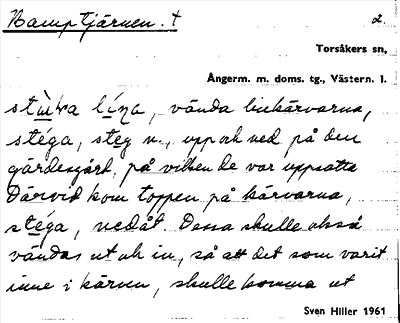 Kamptjärnen. † 2.
Torsåkers sn,
Ångerm. m. doms. tg., Västern. l.
stùka línạ, vända linkärvarna,
stéga, steg n., upp och ned på den
gärdesgård, på vilken de var uppsatta
Därvid kom toppen på kärvarna,
stéga, nedåt. Dessa skulle också
vändas ut och in, så att det som varit
inne i kärven, skulle komma ut
Sven Hiller 1961